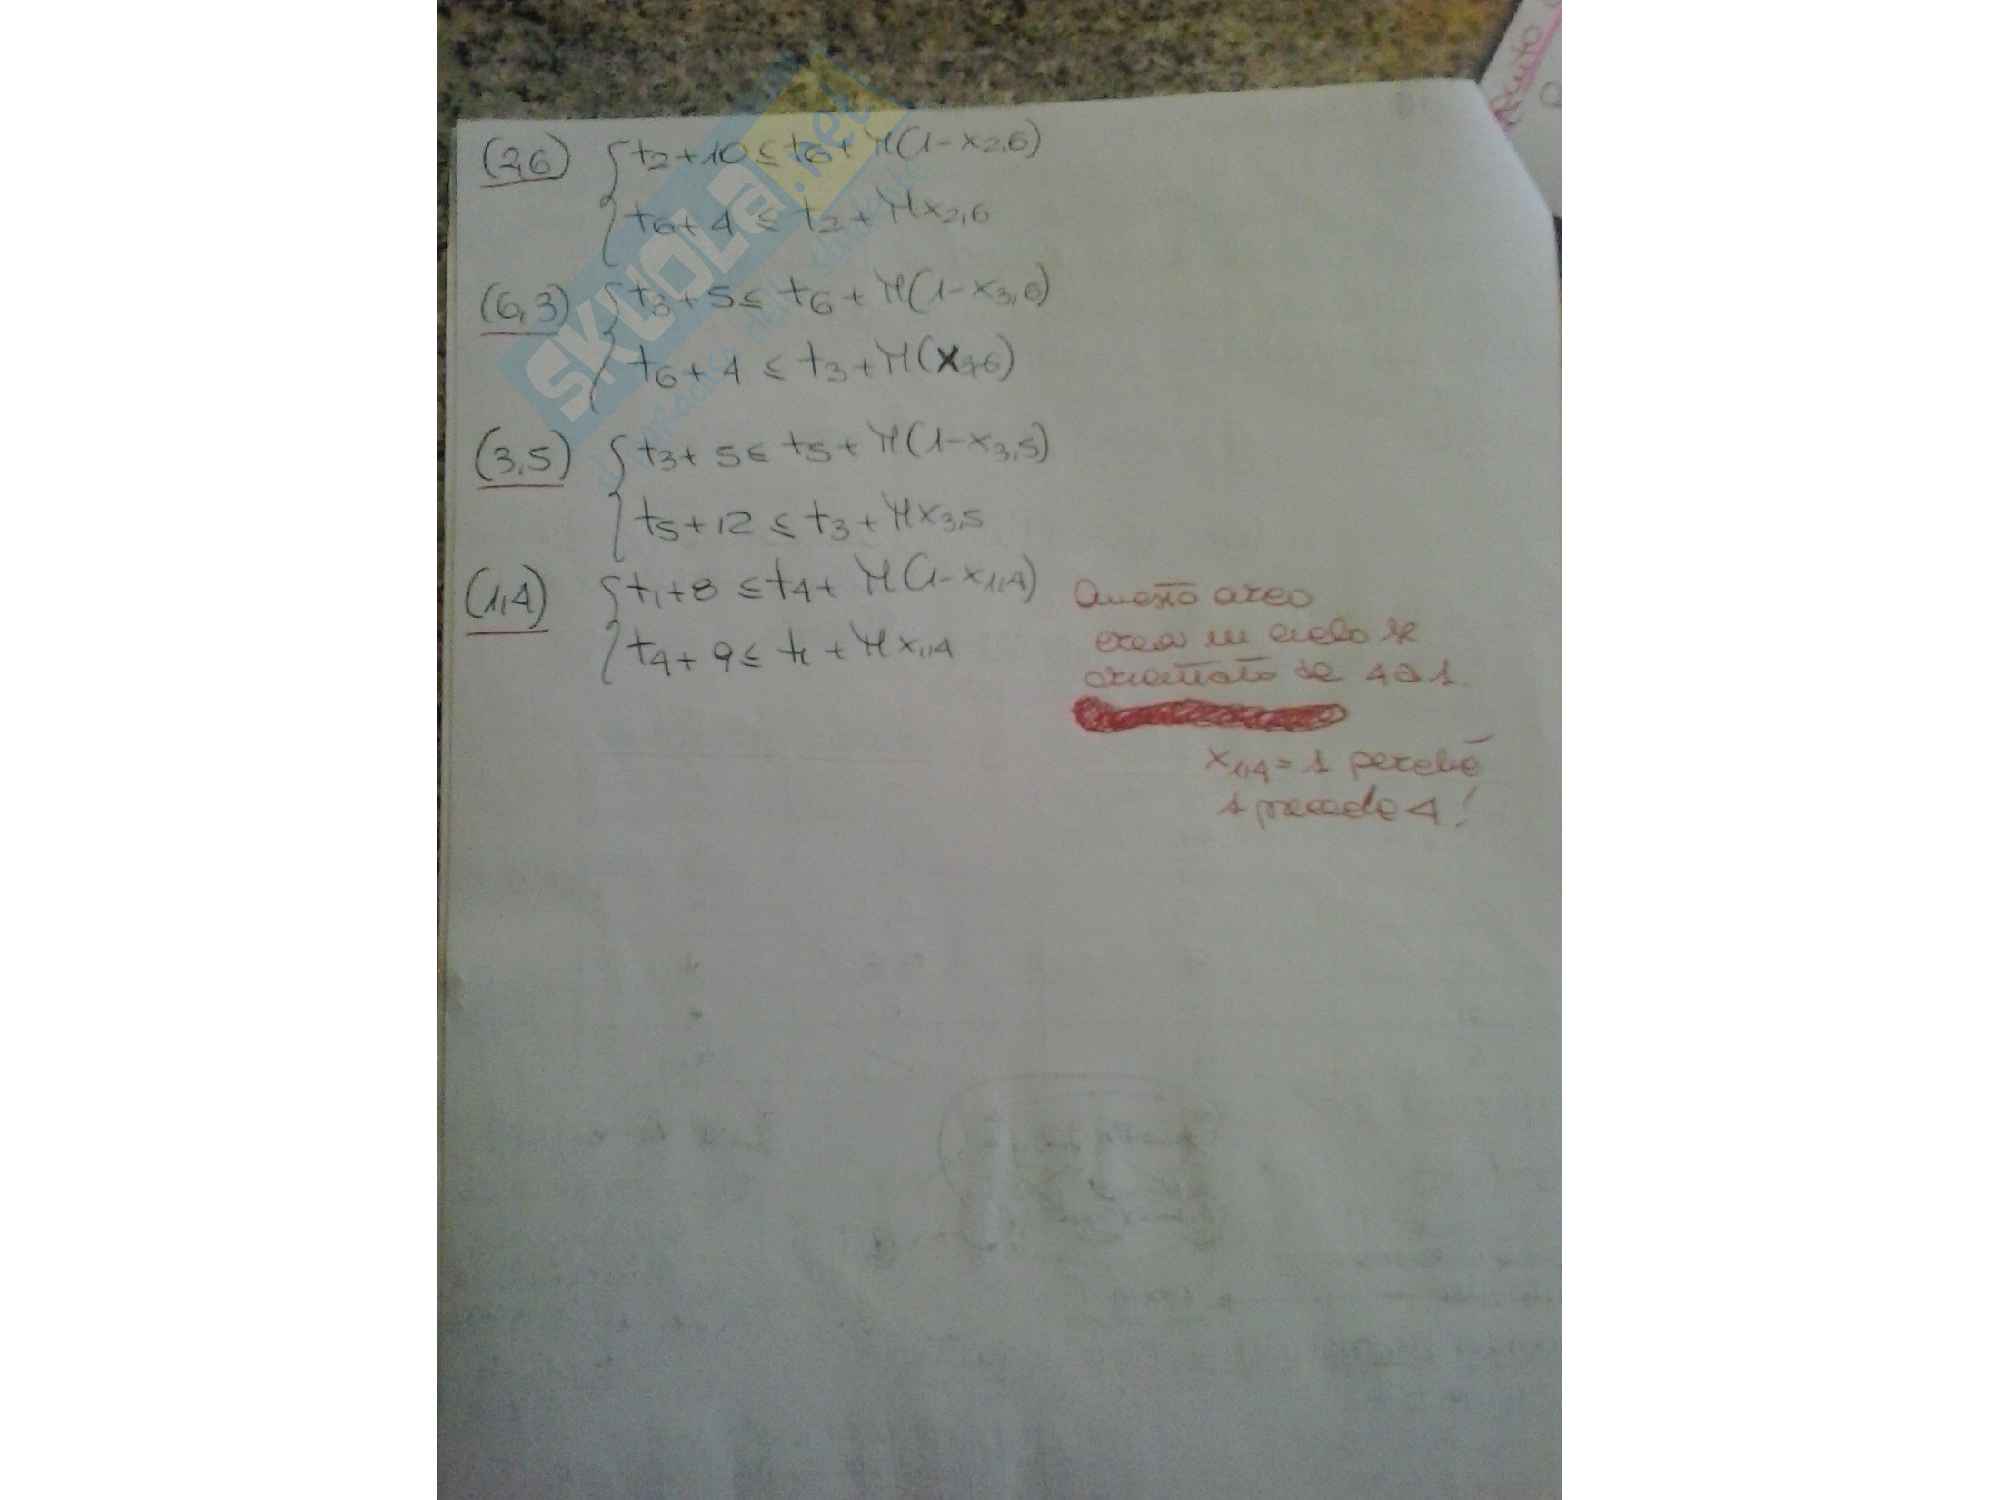 (2,6) { t2+10 ≤ t6+ M(1-x2,6)
t6+4 ≤ t2+ Mx2,6
(6,3) { t3+5 ≤ t6+ M(1-x3,6)
t6+4 ≤ t3+M(x3,6)
(3,5) { t3+5 ≤ t5+ M(1-x3,5)
t5+12 ≤ t3+ Mx3,5
(1,4) { t1+8 ≤ t4+ M(1-x1,4)
t4+9 ≤ t1 + Mx1,4
Questo arco
crea un ciclo se
orientato da 4 a 1.
x1,4 = 1 perché
1 precede 4!
SKUOLA.net